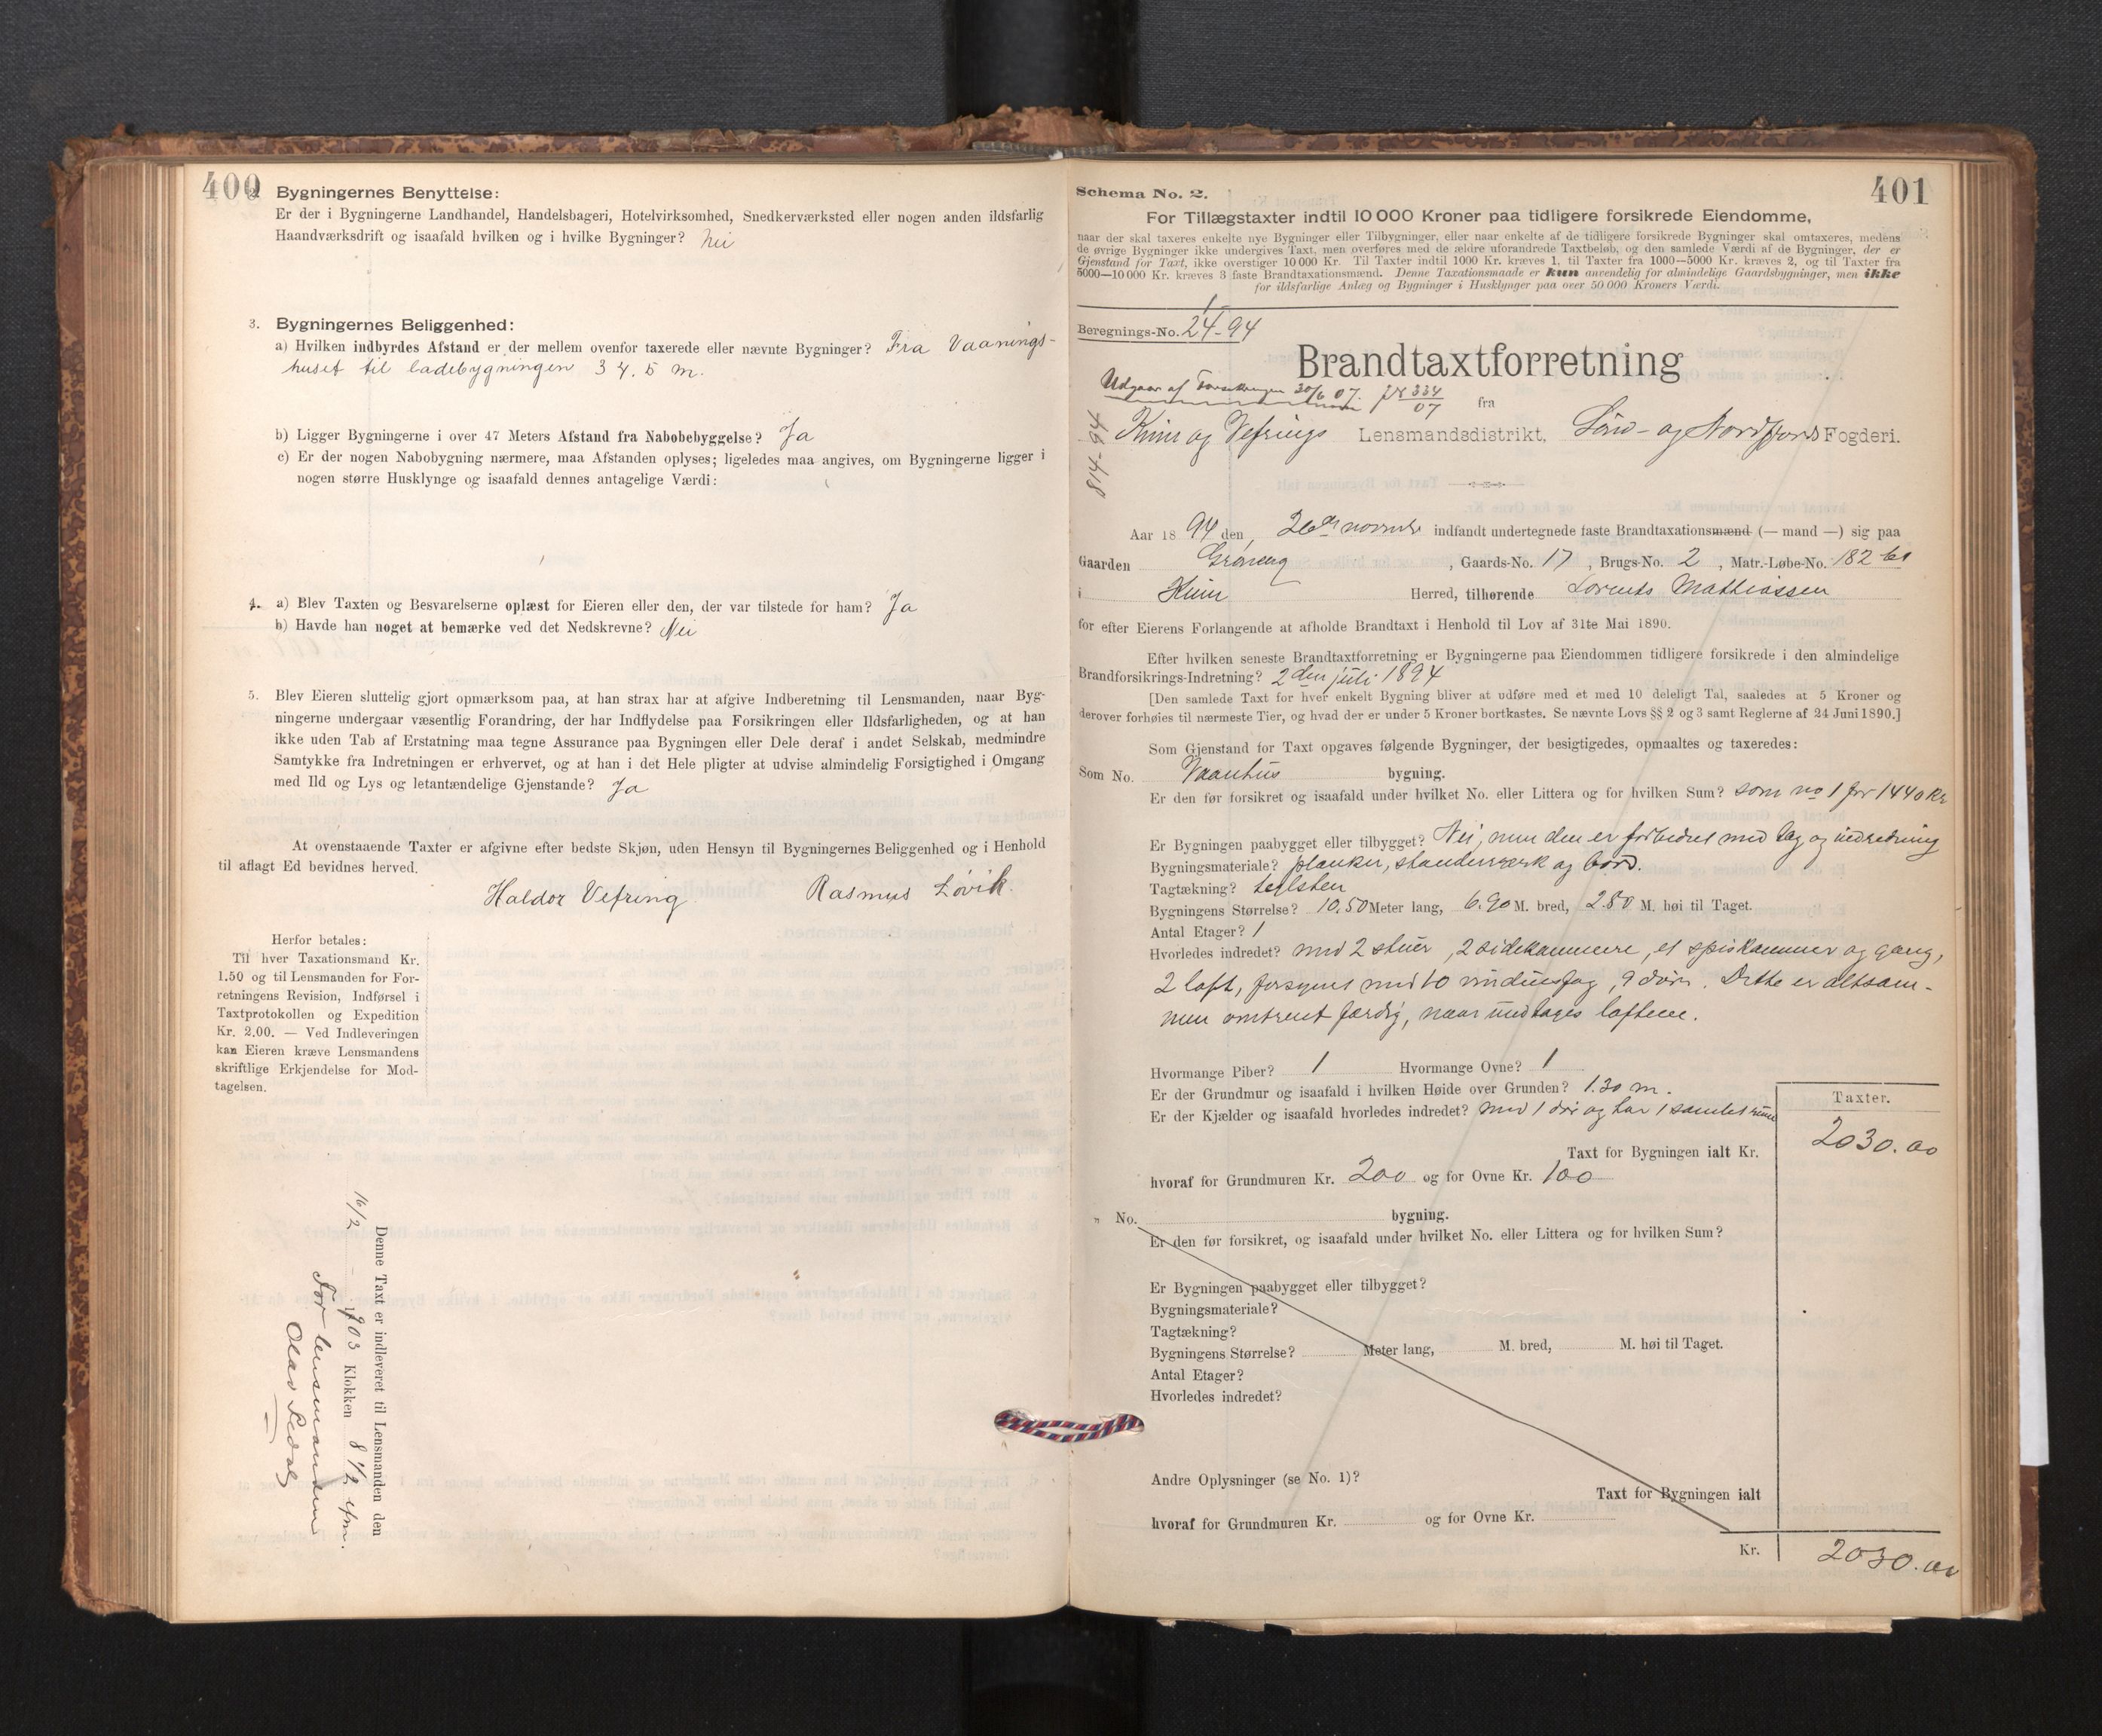 400
2. Bygningernes Benyttelse:
Er der i Bygningerne Landhandel, Handelsbageri, Hotelvirksomhed, Snedkerværksted eller nogen anden ildsfarlig
Haandværksdrift og isaafald hvilken og i hvilke Bygninger? Nei
3. Bygningernes Beliggenhed:
a) Hvilken indbyrdes Afstand er der mellem ovenfor taxerede eller nævnte Bygninger? Fra Vaanings-
huset til ladebygningen 34.5 m.
b) Ligger Bygningerne i over 47 Meters Afstand fra Nabobebyggelse? Ja
c) Er der nogen Nabobygning nærmere, maa Afstanden oplyses; ligeledes maa angives, om Bygningerne ligger i
nogen større Husklynge og isaafald dennes antagelige Værdi:
4. a) Blev Taxten og Besvarelserne oplæst for Eieren eller den, der var tilstede for ham? Ja
b) Havde han noget at bemærke ved det Nedskrevne? Nei
5. Blev Eieren sluttelig gjort opmærksom paa, at han strax har at afgive Indberetning til Lensmanden, naar Byg-
ningerne undergaar væsentlig Forandring, der har Indflydelse paa Forsikringen eller Ildsfarligheden, og at han
ikke uden Tab af Erstatning maa tegne Assurance paa Bygningen eller Dele deraf i andet Selskab, medmindre
Samtykke fra Indretningen er erhvervet, og at han i det Hele pligter at udvise almindelig Forsigtighed i Omgang
med Ild og Lys og letantændelige Gjenstande? Ja
At ovenstaaende Taxter er afgivne efter bedste Skjøn, uden Hensyn til Bygningernes Beliggenhed og i Henhold
til aflagt Ed bevidnes herved.
Haldor Vefring Rasmus Løvik
Herfor betales:
Til hver Taxationsmand Kr.
1.50 og til Lensmanden for For-
retningens Revision, Indførsel i
Taxtprotokollen og Expedition
Kr. 2.00. — Ved Indleveringen
kan Eieren kræve Lensmandens
skriftlige Erkjendelse for Mod-
tagelsen.
Denne Taxt er indleveret til Lensmanden den
16/2 1903 Klokken 8 1/2 efm.
For lensmanden
Olav Sedal
401
Schema No. 2.
For Tillægstaxter indtil 10 000 Kroner paa tidligere forsikrede Eiendomme,
naar der skal taxeres enkelte nye Bygninger eller Tilbygninger, eller naar enkelte af de tidligere forsikrede Bygninger skal omtaxeres, medens
de øvrige Bygninger ikke undergives Taxt, men overføres med de ældre uforandrede Taxtbeløb, og den samlede Værdi af de Bygninger, der er
Gjenstand for Taxt, ikke overstiger 10 000 Kr. Til Taxter indtil 1000 Kr. kræves 1, til Taxter fra 1000—5000 Kr. kræves 2, og til Taxter fra
5000—10 000 Kr. kræves 3 faste Brandtaxationsmænd. Denne Taxationsmaade er kun anvendelig for almindelige Gaardsbygninger, men ikke
for ildsfarlige Anlæg og Bygninger i Husklynger paa over 50 000 Kroners Værdi.
Beregnings-No. 24-94
Brandtaxtforretning
Udgaar af Forsikringen 30/6 07. JN 334/07
fra
Kinn og Vefrings Lensmandsdistrikt, Søn- og Nordfjords Fogderi.
814-94
Aar 1894 den 26de novembr indfandt undertegnede faste Brandtaxationsmænd (— mand —) sig paa
Gaarden Grøneng, Gaards-No. 17, Brugs-No. 2, Matr.-Løbe-No. 182 b1
i Kinn Herred, tilhørende Lorents Mathiassen
for efter Eierens Forlangende at afholde Brandtaxt i Henhold til Lov af 31te Mai 1890.
Efter hvilken seneste Brandtaxtforretning er Bygningerne paa Eiendommen tidligere forsikrede i den almindelige
Brandforsikrings-Indretning? 2den juli 1894
[Den samlede Taxt for hver enkelt Bygning bliver at udføre med et med 10 deleligt Tal, saaledes at 5 Kroner og
derover forhøies til nærmeste Tier, og hvad der er under 5 Kroner bortkastes. Se nævnte Lovs §§ 2 og 3 samt Reglerne af 24 Juni 1890.]
Som Gjenstand for Taxt opgaves følgende Bygninger, der besigtigedes, opmaaltes og taxeredes:
Som No. Vaanhus bygning.
Er den før forsikret og isaafald under hvilket No. eller Littera og for hvilken Sum? som no 1 for 1440 Kr
Er Bygningen paabygget eller tilbygget? Nei, men den er forbedret med tag og indredning
Bygningsmateriale? planker, standerverk og bord.
Tagtækning? teglsten
Bygningens Størrelse? 10.50 Meter lang, 6.90 M. bred, 2.80 M. høi til Taget.
Antal Etager? 1
Hvorledes indredet? med 2 stuer, 2 sidekammere, et spiskammer og gang,
2 loft, forsynet med 10 vinduesfag, 9 døre. Dette er altsam-
men omtrent færdig, naar undtages loftene.
Hvormange Piber? 1 Hvormange Ovne? 1
Er der Grundmur og isaafald i hvilken Høide over Grunden? 1.30 m.
Er der Kjælder og isaafald hvorledes indredet? med 1 dør og har 1 samlet rum
Taxter.
Taxt for Bygningen ialt Kr. 2030.00
hvoraf for Grundmuren Kr. 200 og for Ovne Kr. 100
" No. bygning.
Er den før forsikret, og isaafald under hvilket No. eller Littera og for hvilken Sum?
Er Bygningen paabygget eller tilbygget?
Bygningsmateriale?
Tagtækning?
Bygningens Størrelse? Meter lang, M. bred, M. høi til Taget.
Antal Etager?
Hvorledes indredet?
Andre Oplysninger (se No. 1)?
Taxt for Bygningen ialt
hvoraf for Grundmuren Kr. og for Ovne Kr.
Kr. 2030.00